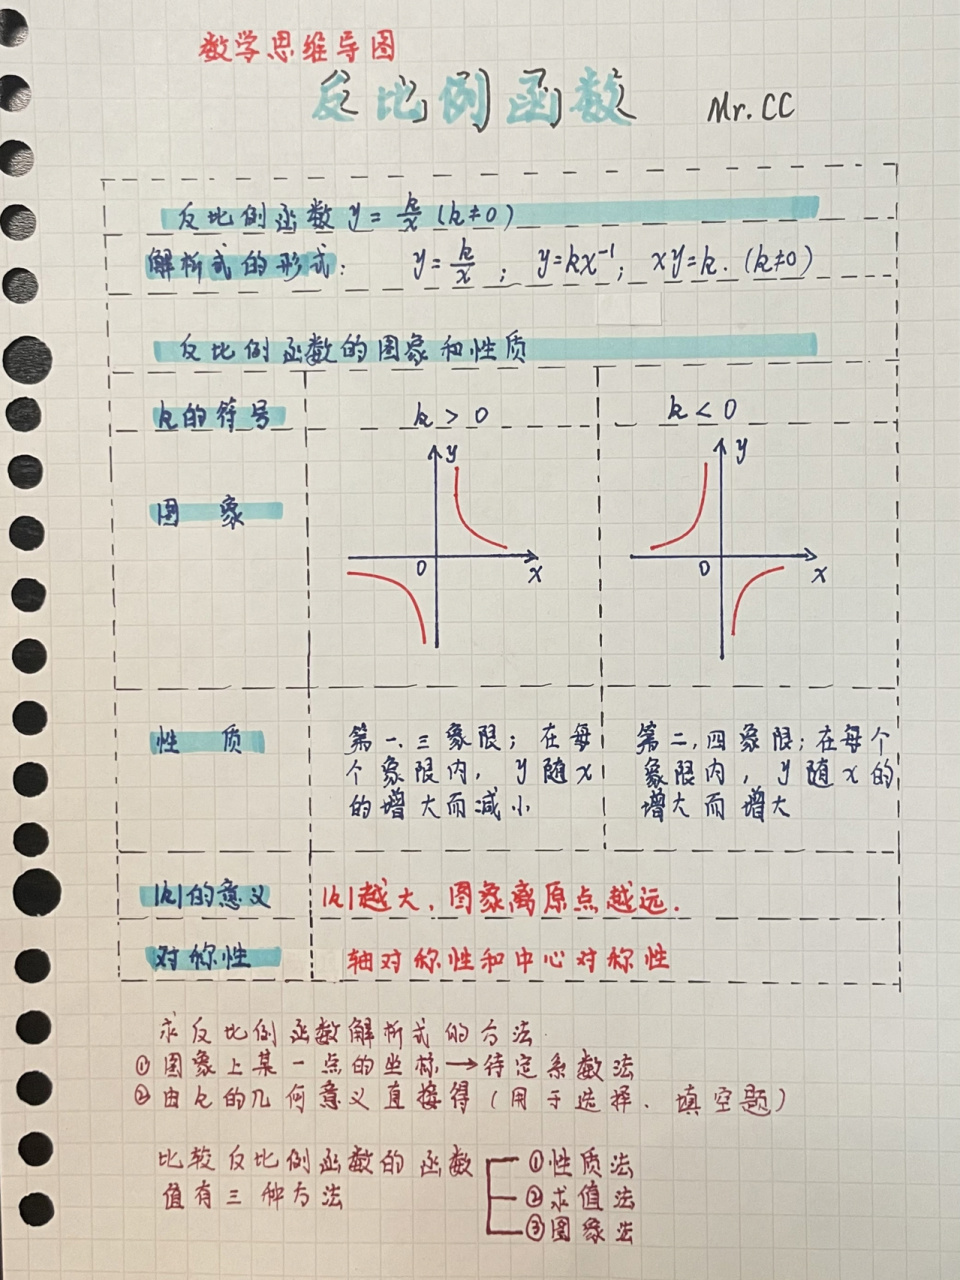 数学思维导图
反比例函数 Mr.CC
反比例函数 y = k/x (k≠0)
解析式的形式: y = k/x ; y=kx⁻¹; xy=k. (k≠0)
反比例函数的图象和性质
k的符号 k > 0 k < 0
图 象
y
O
x
y
O
x
性 质
第一、三象限; 在每
个象限内, y 随 x
的增大而减小
第二, 四象限; 在每个
象限内, y 随 x 的
增大而增大
|k|的意义 |k|越大, 图象离原点越远.
对称性 轴对称性和中心对称性
求反比例函数解析式的方法
①图象上某一点的坐标→待定系数法
②由k的几何意义直接得(用于选择、填空题)
比较反比例函数的函数
值有三种方法
①性质法
②求值法
③图象法